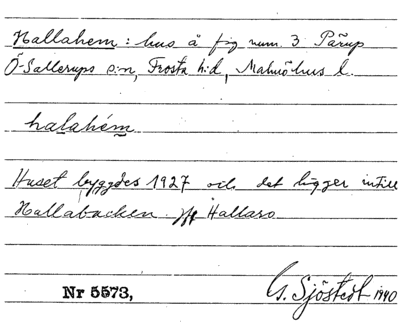 Hallahem : hus å fig num. 3 Pärup
Ö. Sallerups s:n, Frosta h:d, Malmöhus l.
halahém
Huset byggdes 1927 och det ligger intill
Hallabacken. Jfr Hallaro
Nr 5573,
G. Sjöstedt 1940